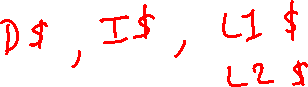 D$, I$, L1 $
L2 $